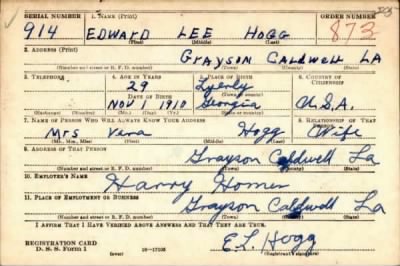 SERIAL NUMBER 1. NAME (Print) ORDER NUMBER
914 EDWARD LEE HOGG 873
(First) (Middle) (Last)
2. ADDRESS (Print)
GRAYSON CALDWELL LA
(Number and street or R. F. D. number) (Town) (County) (State)
3. TELEPHONE 4. AGE IN YEARS 5. PLACE OF BIRTH 6. COUNTRY OF CITIZENSHIP
29 Lyerly
DATE OF BIRTH
Nov 1 1910 Georgia U.S.A.
7. NAME OF PERSON WHO WILL ALWAYS KNOW YOUR ADDRESS 8. RELATIONSHIP OF THAT PERSON
Mrs Vera Hogg Wife
(Mr., Mrs., Miss) (First) (Middle) (Last)
9. ADDRESS OF THAT PERSON
Grayson Caldwell La
(Number and street or R. F. D. number) (Town) (County) (State)
10. EMPLOYER'S NAME
Harry Homer
11. PLACE OF EMPLOYMENT OR BUSINESS
Grayson Caldwell La
(Number and street or R. F. D. number) (Town) (County) (State)
I AFFIRM THAT I HAVE VERIFIED ABOVE ANSWERS AND THAT THEY ARE TRUE.
REGISTRATION CARD
D. S. S. Form 1 (over) 16-17105 E.L. Hogg